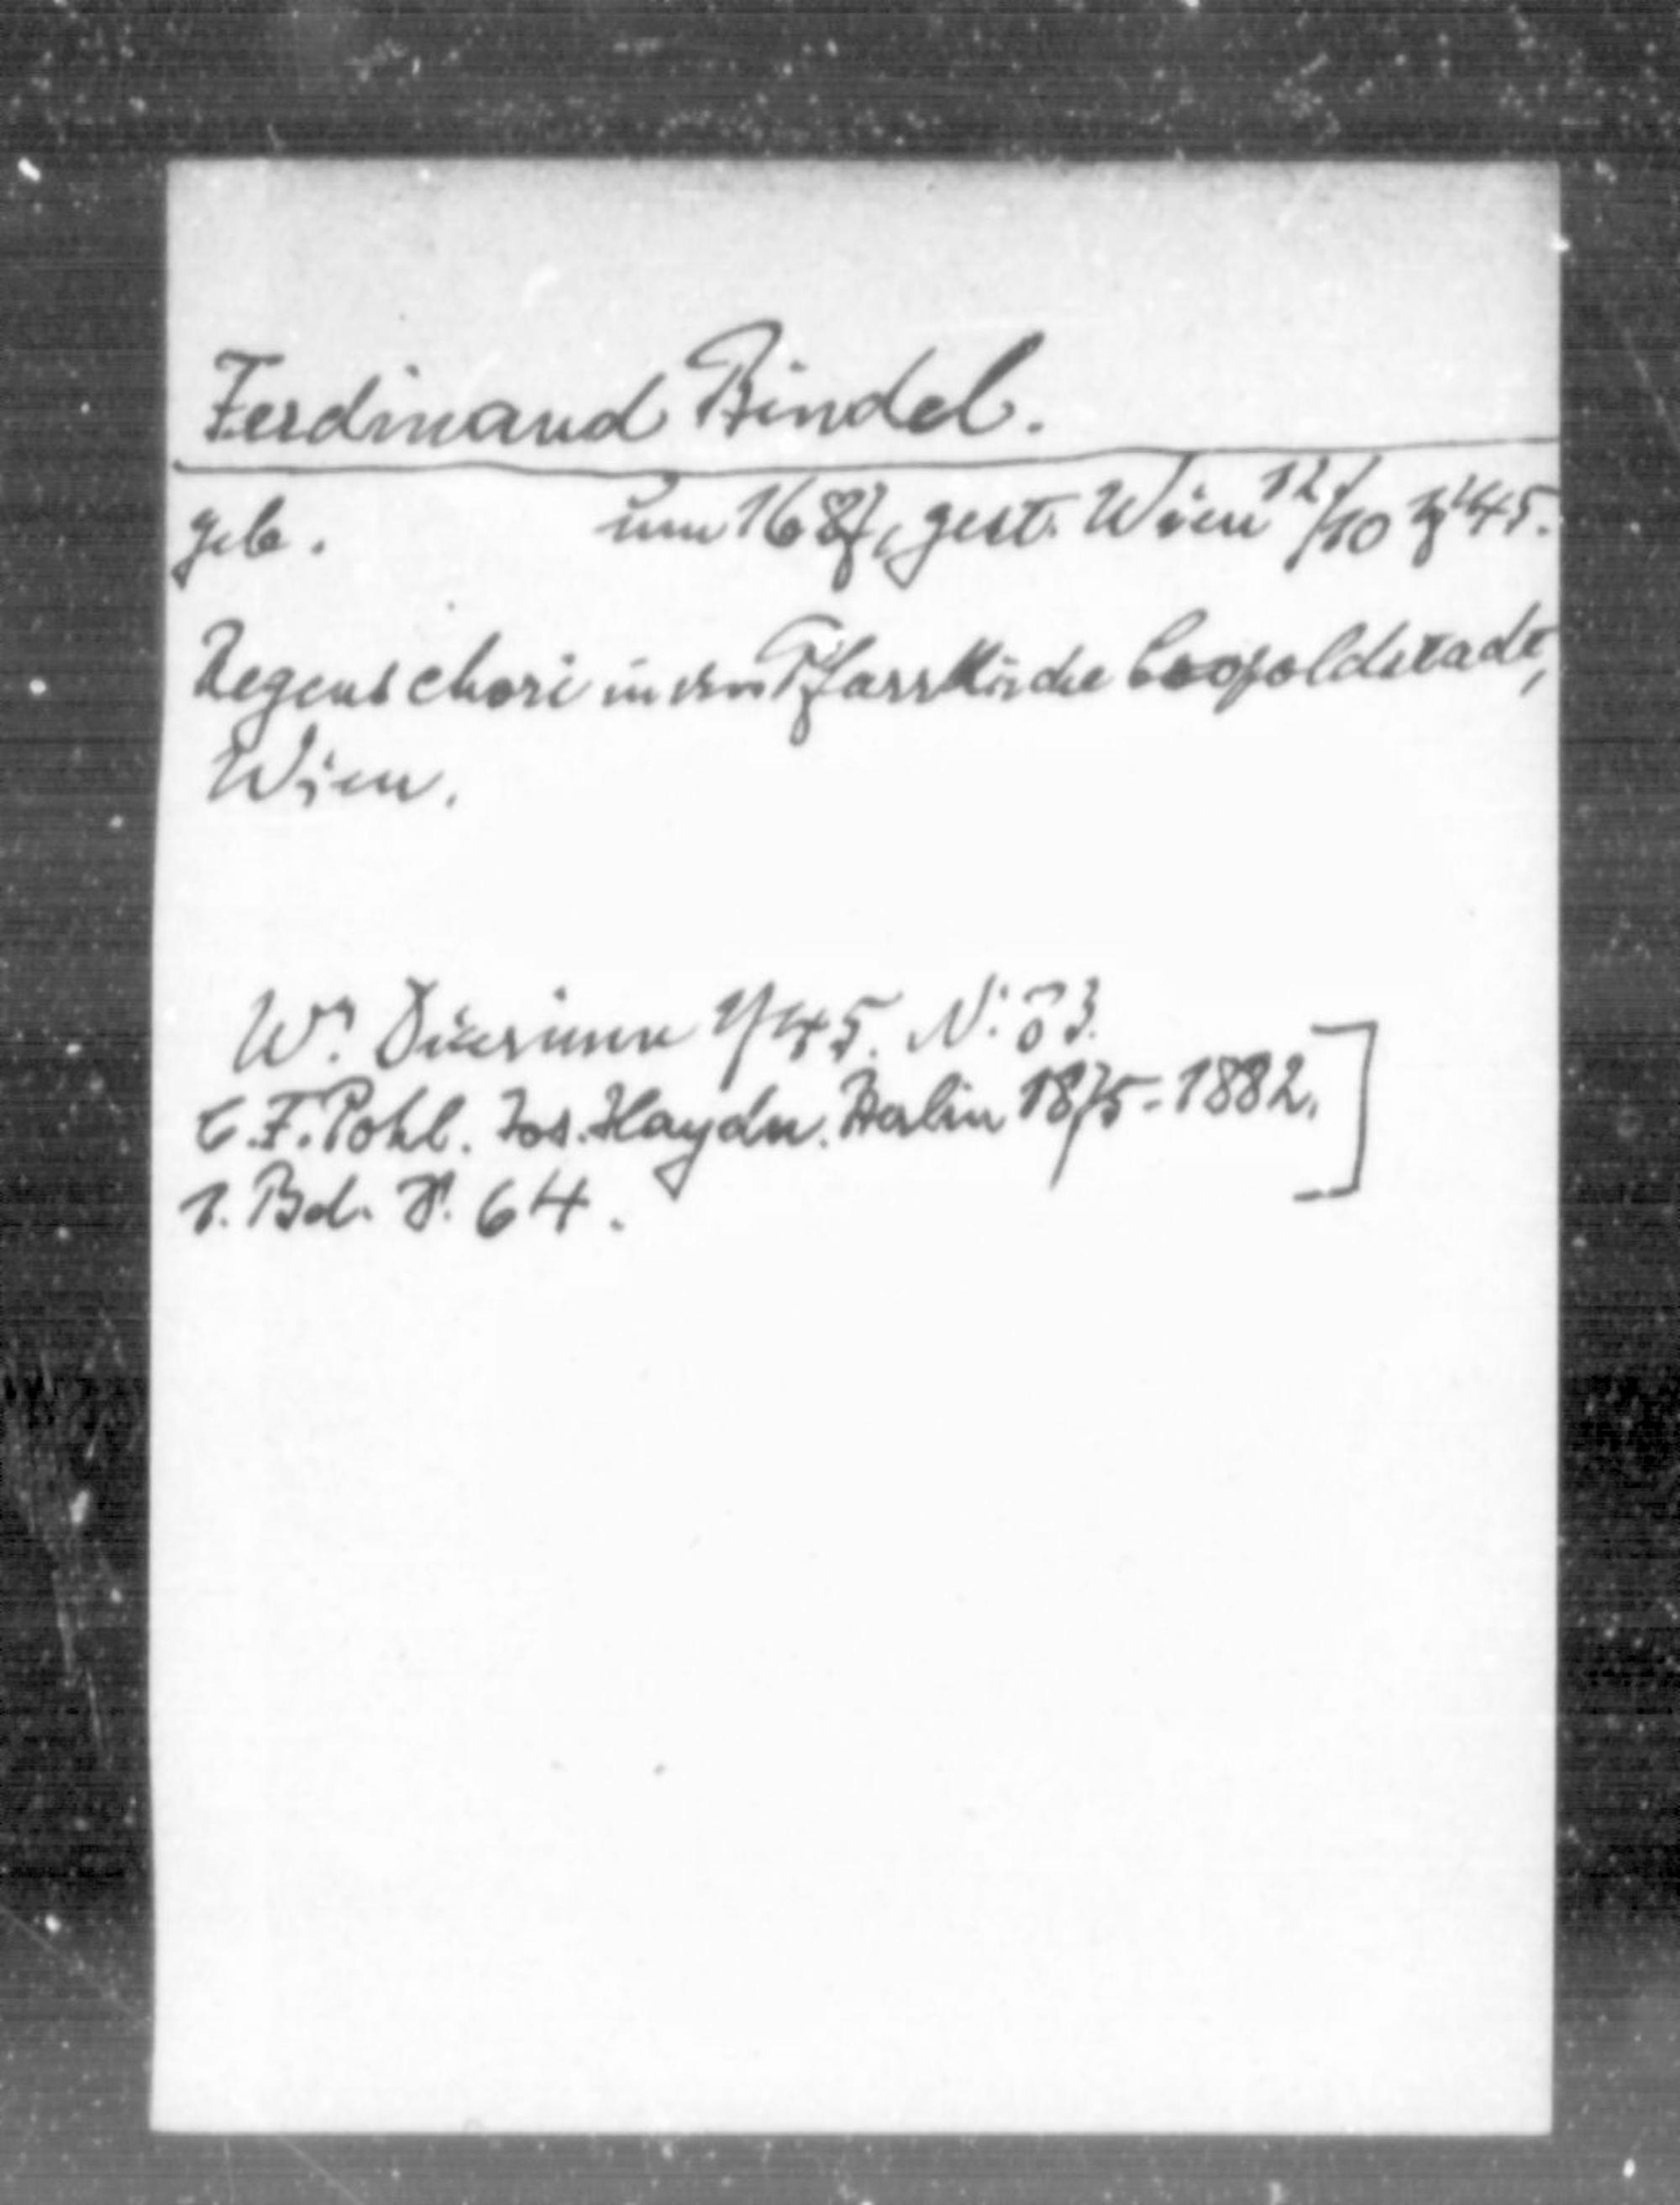 Ferdinand Bindel.
geb. um 1687, gest. Wien 12/10 745.
Regens chori in der Pfarrkirche Leopoldstadt,
Wien.
Wr. Diarium 745. N: 83.
C. F. Pohl. Jos. Haydn. Berlin 1875-1882.]
1. Bd. S. 64.